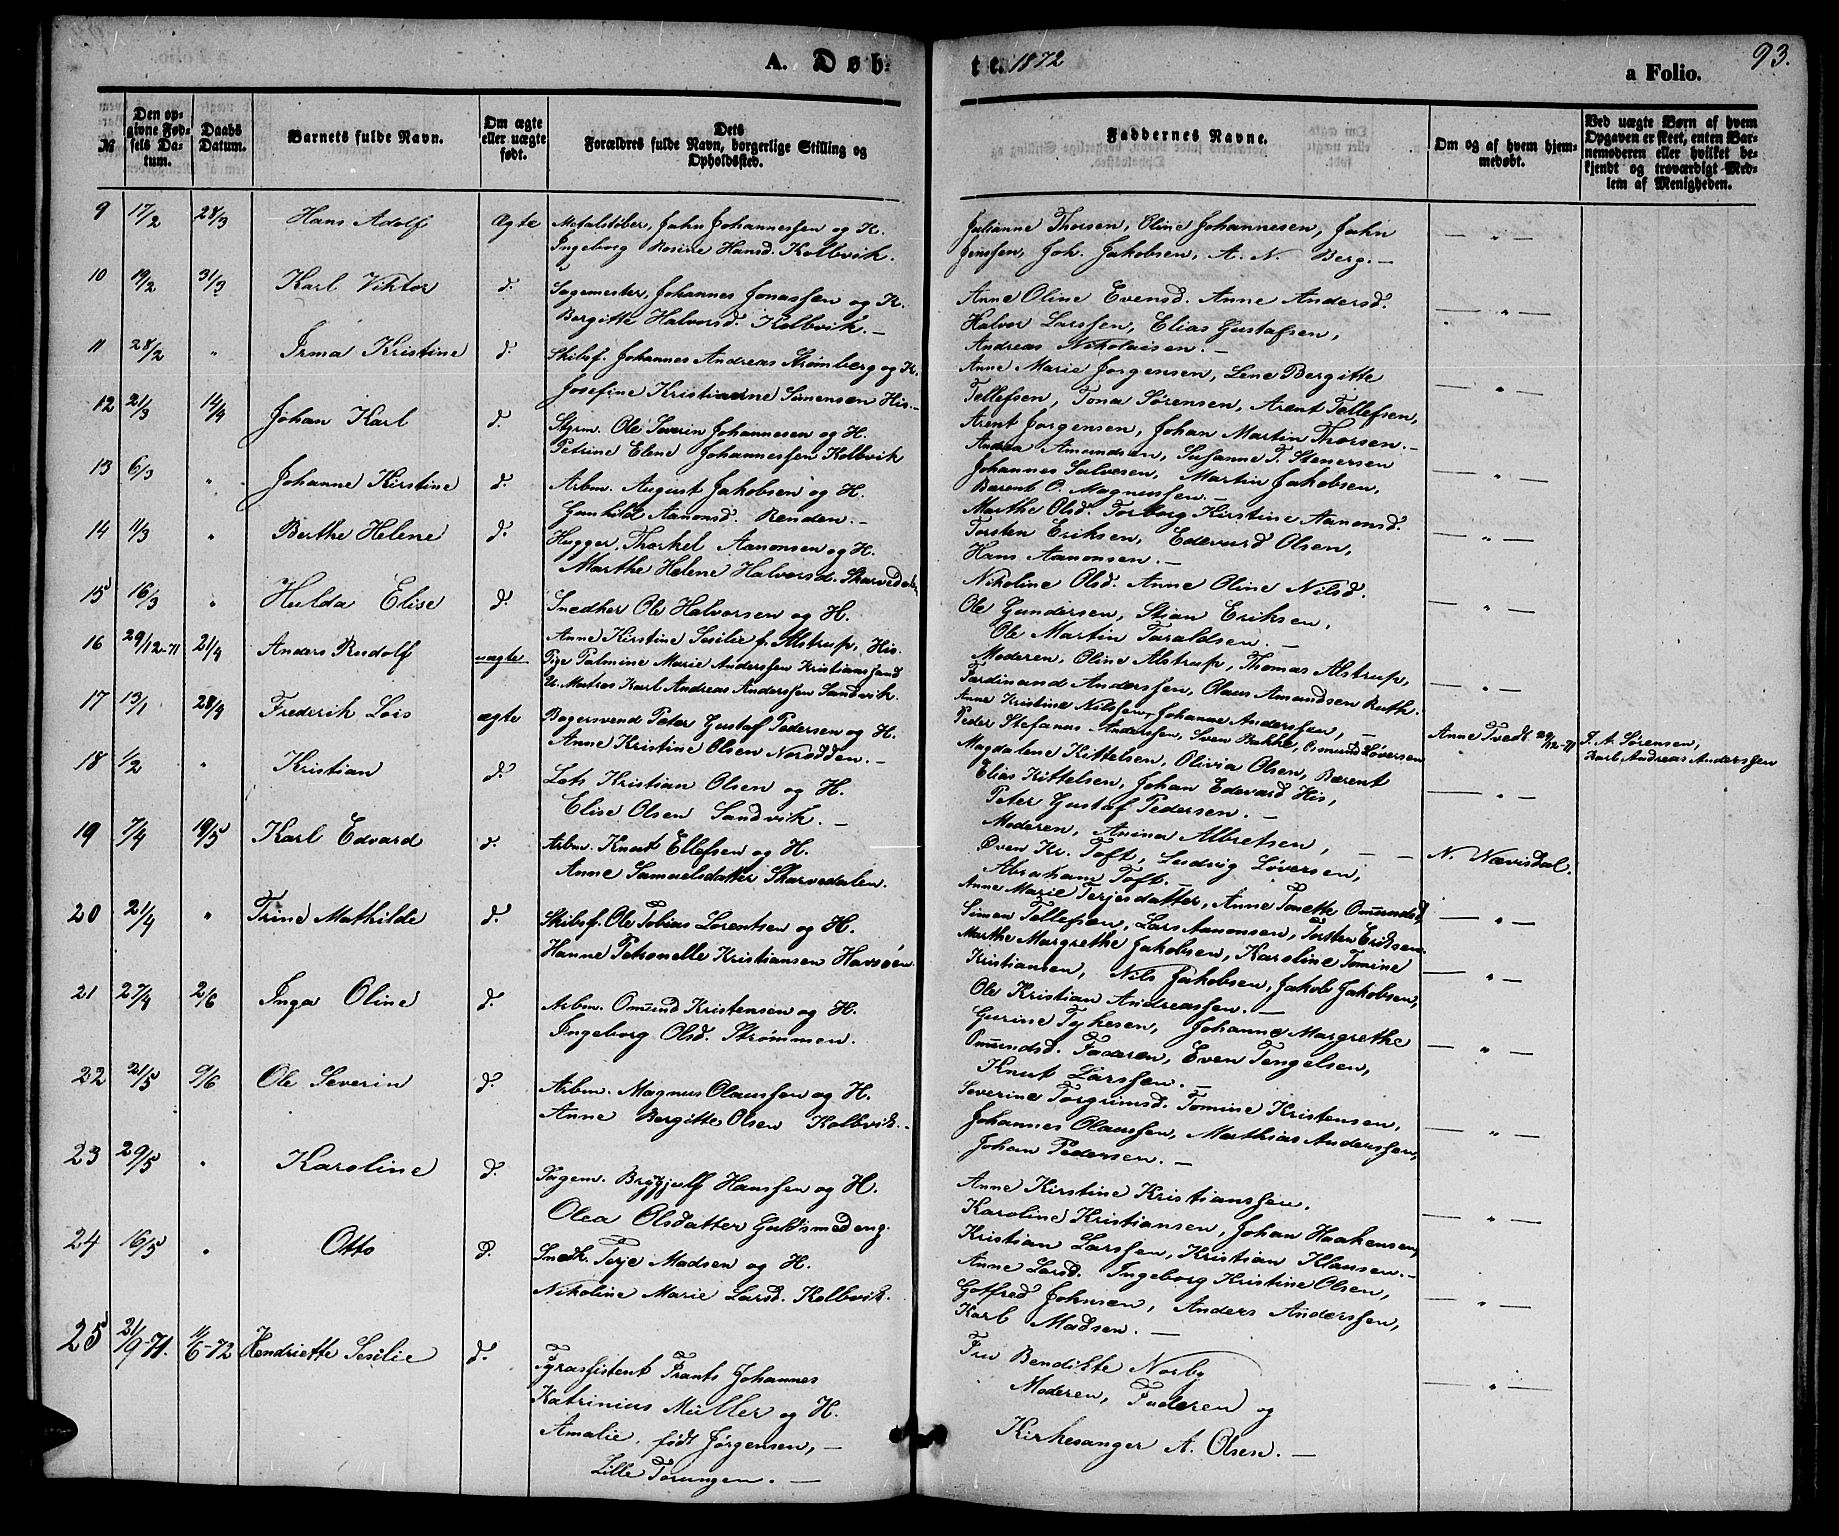 A. Døb-
te. 1872
a Folio.
93.
№
Den op-
givne Fød-
sels Da-
tum.
Daabs
Datum.
Barnets fulde Navn.
Om ægte
eller uægte
født.
Dets
Forældres fulde Navn, borgerlige Stilling og
Opholdssted.
Faddernes Navne.
Om og af hvem hjem-
medøbt.
Ved uægte Børn af hvem
Opgaven er skeet, enten Bar-
nemoderen eller hvilket be-
kjendt og troværdigt Med-
lem af Menigheden.
9 17/2 28/3 Hans Adolf Ægte Metalstøber, John Johannessen og H.
Ingeborg Rosine Hansd. Kolbvik.
Julianne Thorsen, Oline Johannesen, John
Jenssen, Joh. Jakobsen, A. N. Berg. — — " —
10 19/2 31/3 Karl Viktor d. Sagemester, Johannes Jonassen og H.
Bergitte Halvorsd. Kolbvik. —
Anne Oline Evensd. Anne Andersd.
Halvor Larssen, Elias Gustafsen,
Andreas Nikolaisen. — — " —
11 28/2 " Irma Kristine d. Skibsf. Johannes Andreas Strømberg og H.
Josefine Kristianne Simensen His. —
Anne Marie Jørgensen, Lene Bergitte
Tellefsen, Tona Sørensen, Arent Tellefsen,
Arent Jørgensen, Johan Martin Thorsen. — — " —
12 21/3 14/4 Johan Karl d. Styrm. Ole Severin Johannesen og H.
Petrine Elene Johannessen Kolbvik
Andrea Amundsen, Susanne T. Stenersen
Johannes Salvesen, Martin Jakobsen,
Bærent O. Magnussen. — — " —
13 6/3 " Johanne Kirstine d. Arbm. August Jakobsen og H.
Gunhild Aanonsd. Renden. —
Marthe Olsd. Torborg Kirstine Aanonsd.
Torsten Eriksen, Edevard Olsen,
Hans Aanonsen. — — " —
14 11/3 " Berthe Helene d. Hugger, Thorkel Aanonsen og H.
Marthe Helene Halvorsd. Skarvedalen
Nikoline Olsd. Anne Oline Nilsd.
Ole Gundersen, Stian Eriksen,
Ole Martin Taraldsen. — — " —
15 16/3 " Hulda Elise d. Snedker Ole Halvorsen og H.
Anne Kirstine Sesilie f. Alstrup, His.
Moderen, Oline Alstrup, Thomas Alstrup,
Ferdinand Anderssen, Olaus Amundsen Ruth. — " —
16 29/12-71 21/4 Anders Rudolf uægte Pige Palmine Marie Anderssen Kristianssand
U. Matros Karl Andreas Anderssen Sandvik.
Anne Kristine Nilssen, Johanne Anderssen, —
Peder Stefanus Anderssen, Sven Bakke, Osmund Løversen
Anne Tvedt 29/12-71
T. A. Sørensen,
Karl Andreas Anderssen
17 13/1 28/4 Frederik Lois ægte Bagersvend Peter Gustaf Pedersen og H.
Anne Kristine Olsen Norodden. —
Magdalene Kittelsen, Olivia Olsen, Bærent
Elias Kittelsen, Johan Edevard His,
Peter Gustaf Pedersen. — — " —
18 1/2 " Kristian d. Lots Kristian Olsen og H.
Elise Olsen Sandvik. —
Moderen, Anina Albretsen, — —
Oven Kr. Toft, Ludvig Løversen,
Abraham Toft. —
N. Nævisdal.
19 7/4 19/5 Karl Edvard d. Arbm. Knut Ellefsen og H.
Anne Samuelsdatter Skarvedalen.
Anne Marie Terjesdatter, Anne Tonette Omundsd,
Simen Tellefsen, Lars Aanonsen, Torsten Eriksen. — " —
20 21/4 " Trine Mathilde d. Skibsf. Ole Tobias Lorentsen og H.
Hanne Petronelle Kristiansen Havsøen.
Marthe Margrethe Jakobsen, Karoline Tomine
Kristiansen, Nils Jakobsen, Jakob Jakobsen,
Ole Kristian Andreassen. — — " —
21 27/4 2/6 Inga Oline d. Arbm. Omund Kristensen og H.
Ingeborg Olsd. Strømmen.
Gurine Tykesen, Johanne Margrethe
Omundsd. Faderen, Even Tengelsen,
Knut Larssen. — — " —
22 21/5 9/6 Ole Severin d. Arbm. Magnus Olaussen og H.
Anne Bergitte Olsen Kolbvik. -
Severine Torgrimsd. Tomine Kristensen,
Johannes Olaussen, Mathias Anderssen,
Johan Pedersen. — — " —
23 29/5 " Karoline d. Sagem. Bryjulf Hanssen og H.
Olea Olsdatter Guldsmedeng.
Anne Kirstine Kristianssen,
Karoline Kristiansen, Johan Haakensen,
Kristian Larssen, Kristian Klausen. — — " —
24 16/5 " Otto d. Snedk. Terje Madsen og H.
Nikoline Marie Larsd. Kolbvik.
Anne Larsd. Ingeborg Kristine Olsen,
Gotfred Johnsen, Anders Anderssen,
Karl Madsen. — — " —
25 21/9-71. 11/6-72 Hendriette Sesilie d. Fyrassistent Frants Johannes
Katrinius Müller og H.
Amalie, født Jørgensen, —
Lille Torungen. —
Fru Bendikte Norby
Moderen, Faderen og
Kirkesanger A. Olsen. — — " —